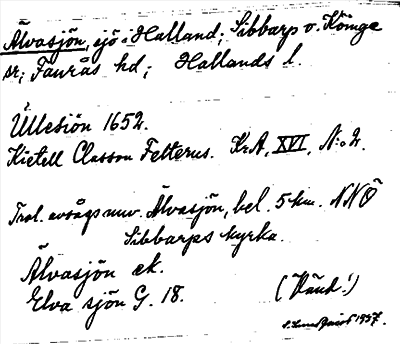 Älvasjön, sjö i Halland; Sibbarp o. Köinge
sr; Faurås hd; Hallands l.
Ullesiön 1652.
Kietell Classon Felterus. KrA, XVI, N:o 2.
Trol. avsågs nuv. Älvasjön, bel. 5 km. NNÖ
Sibbarps kyrka.
Älvasjön ek.
Elva sjön G. 18.
(Känd!)
1937.